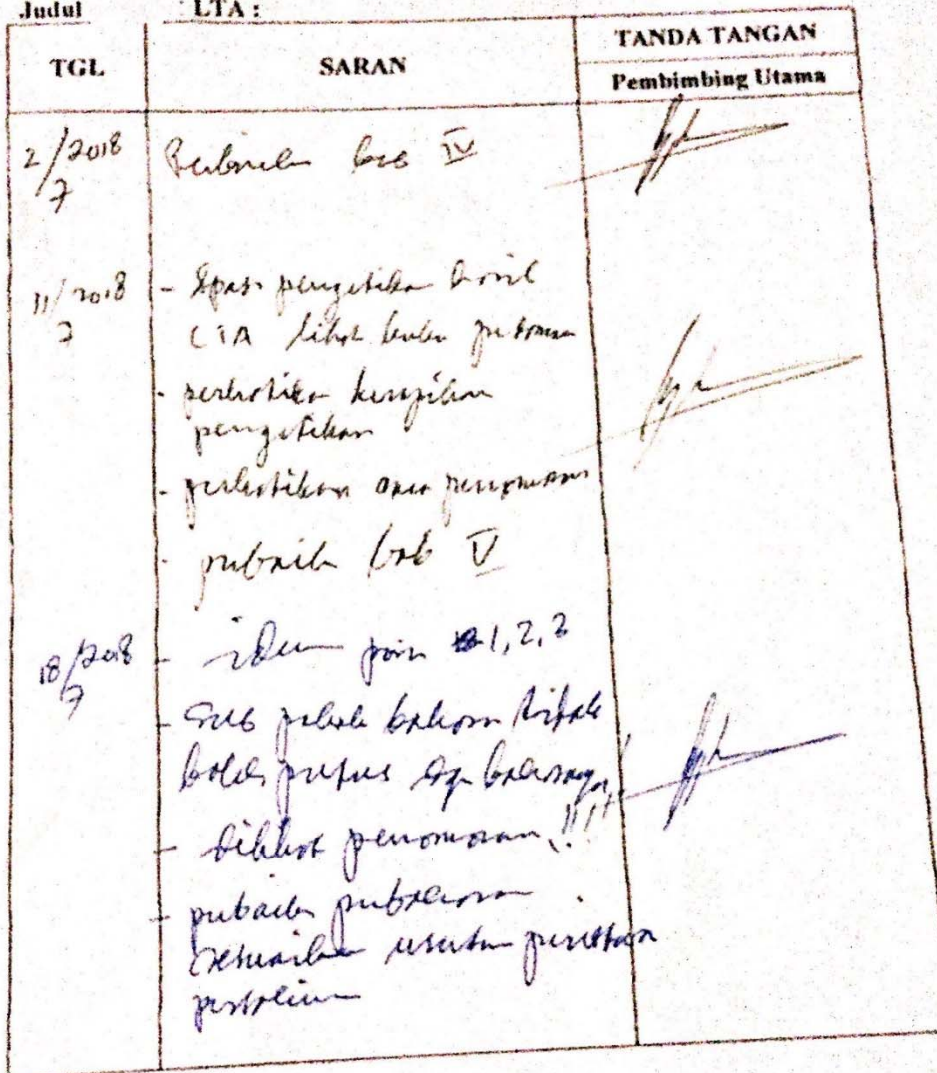 Judul LTA :
TGL SARAN TANDA TANGAN
Pembimbing Utama
2/2018 Perbaiki bab IV
7
11/2018 - Spasi pengetikan
7 LTA lihat buku pedoman
- perhatikan kerapihan
pengetikan
- perhatikan penomoran
- perbaiki bab V
18/2018 - idem poin 1, 2, 3
7
- Sub pokok bahasan tidak
boleh putus
- dilihat penomoran !!!!
- perbaiki pembahasan
sesuaikan urutan